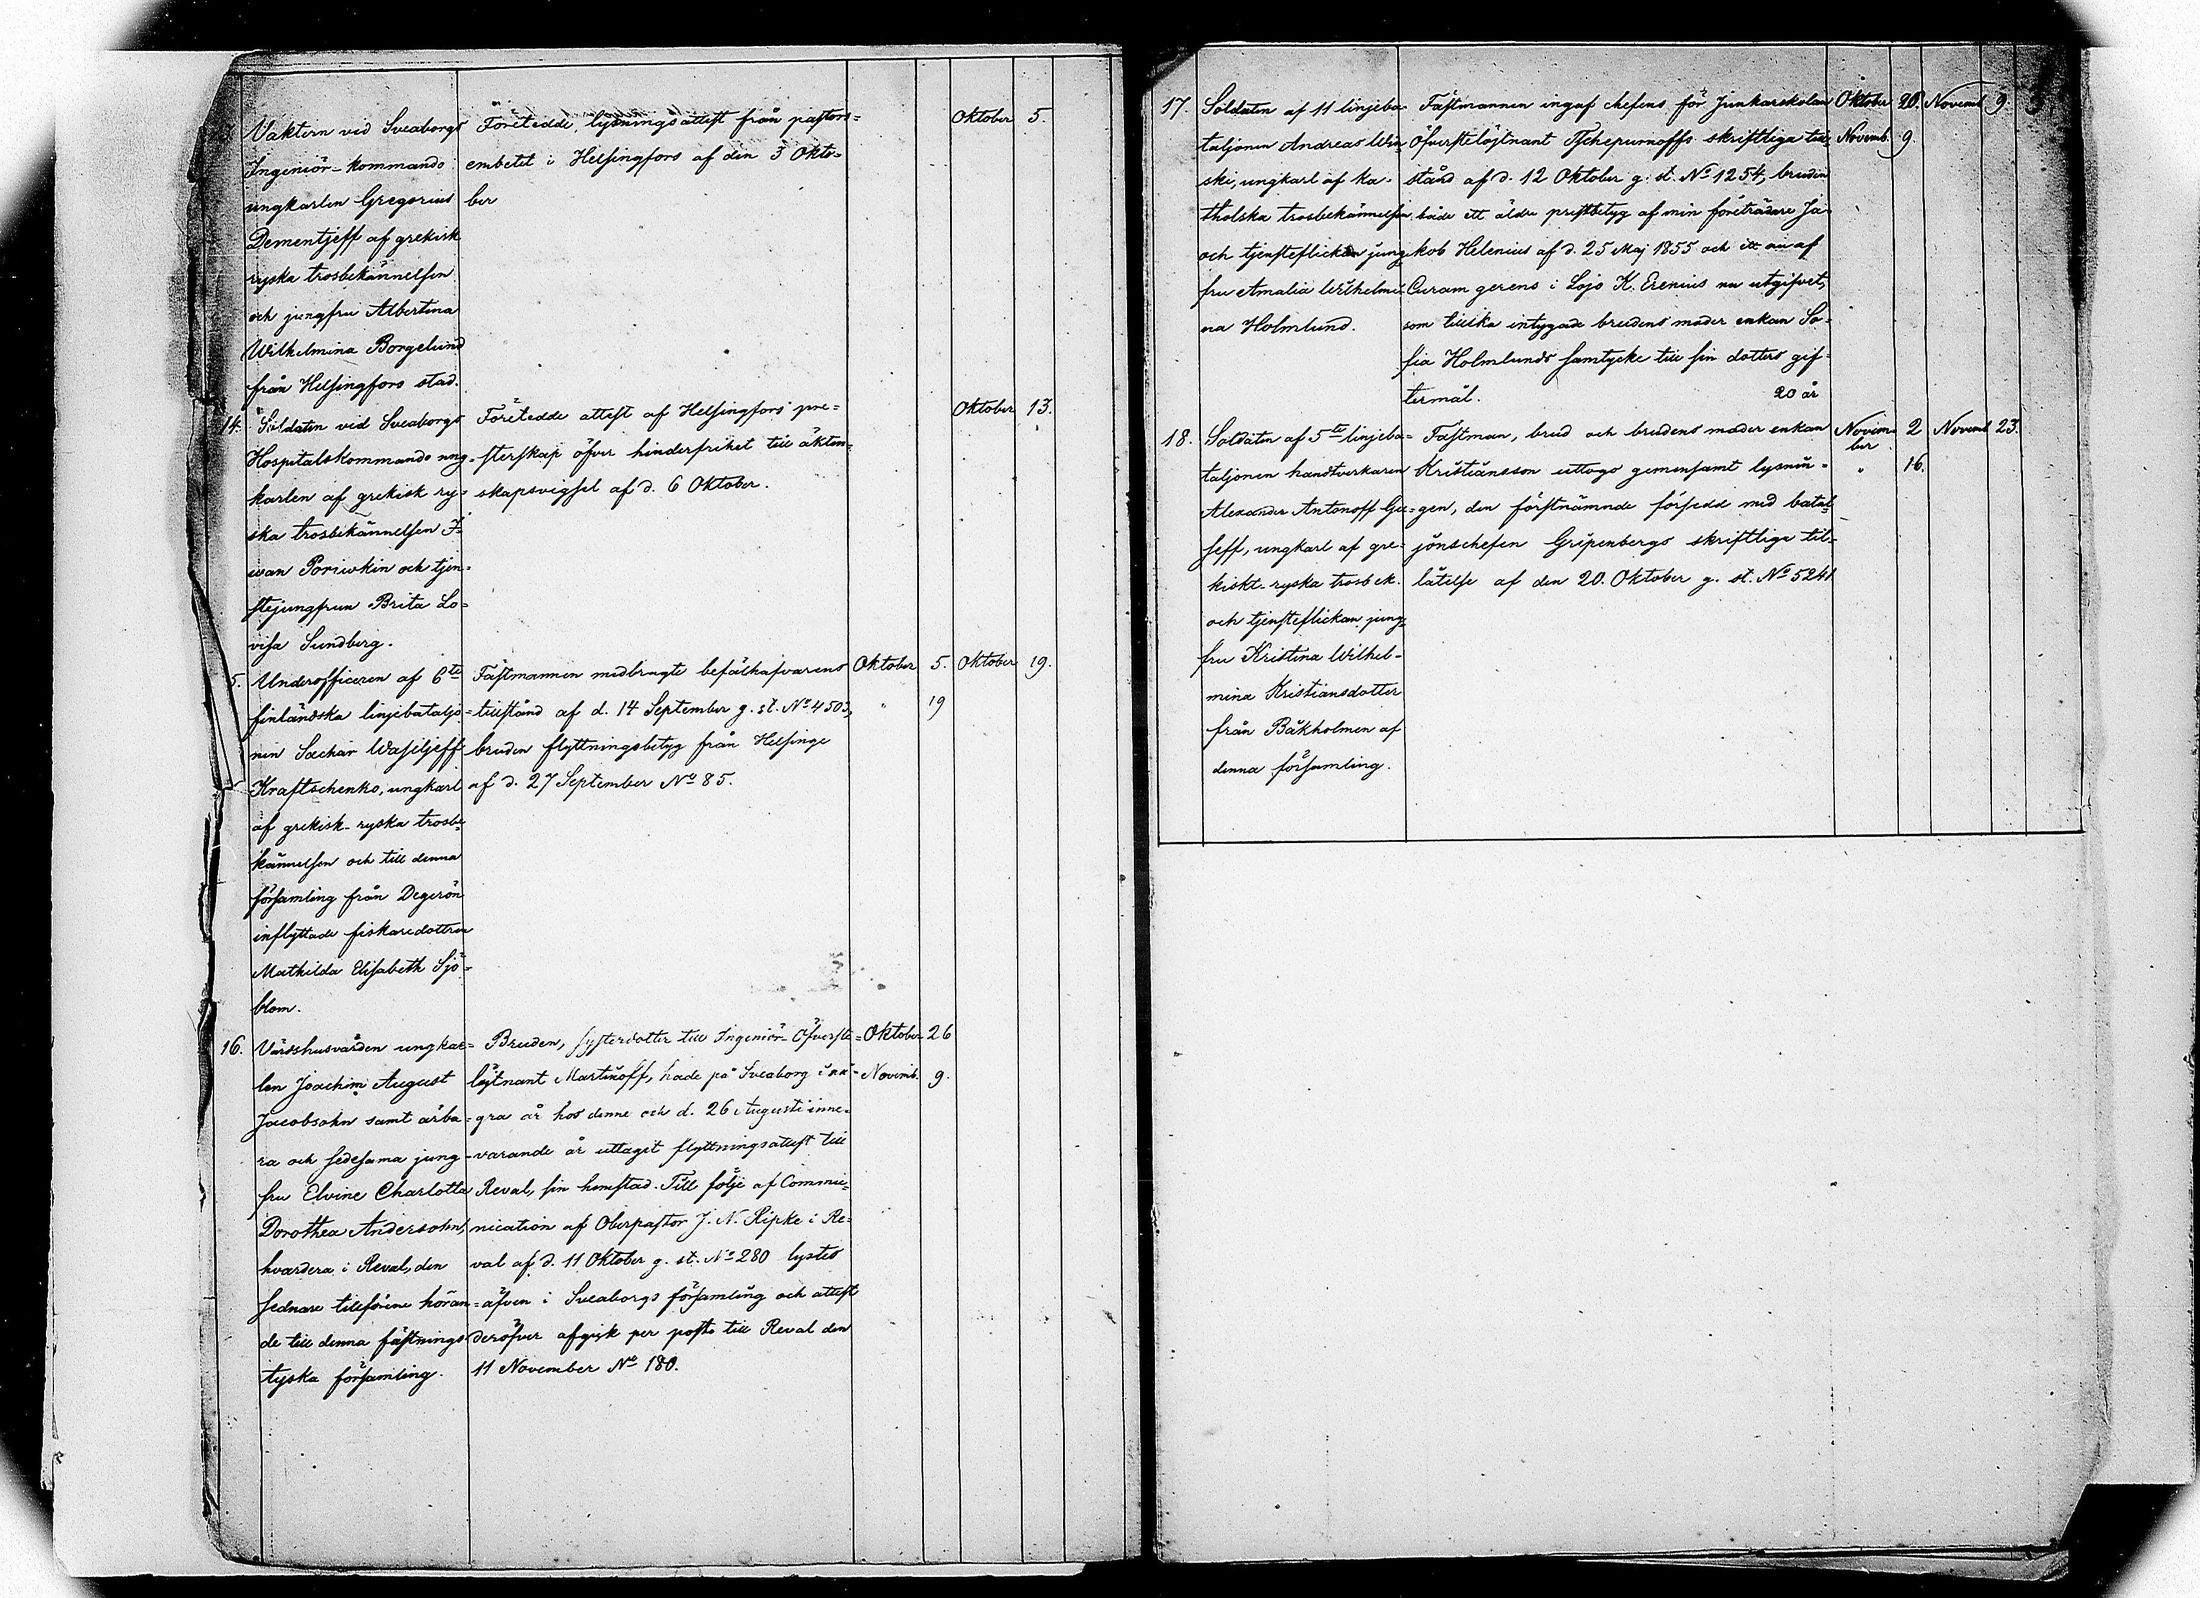 Vaktern vid Sveaborgs
Ingeniör-kommando
ungkarlen Gregorius
Dementjeff af grekisk
ryska trosbekännelsen
och jungfru Albertina
Wilhelmina Borgelund
från Helsingfors stad.
Företedde lysningsattest från pastors=
embetet i Helsingfors af den 3 Okto=
ber
Oktober 5.
14. Soldaten vid Sveaborgs
Hospitalskommando ung=
karlen af grekisk ry=
ska trosbekännelsen I=
wan Poriwkin och tjen=
stejungfrun Brita Lo=
visa Sundberg.
Företedde attest af Helsingfors pre=
sterskap öfver hinderfrihet till äkten=
skapsvigsel af d. 6 Oktober.
Oktober 13.
5. Underofficeren af 6te
finländska linjebataljo=
nen Sachar Wasiljeff
Kraftschenko, ungkarl
af grekisk-ryska trosbe=
kännelsen och till denna
församling från Degerön
inflyttade fiskaredottren
Mathilda Elisabeth Sjö=
blom.
Fästmannen medbragte befälhafvarens
tillstånd af d. 14 September g. st. No 4503,
bruden flyttningsbetyg från Helsinge
af d. 27 September No 85.
Oktober 5. Oktober 19.
" 19
16. Värdshusvärden ungkar=
len Joachim August
Jacobsohn samt ärba=
ra och sedesama jung=
fru Elvine Charlotta
Dorothea Andersohn,
hvardera i Reval, den
sednare tillförene höran=
de till denna fästnings
tyska församling.
Bruden, systerdotter till Ingeniör-Öfverste=
löjtnant Martinoff, hade på Sveaborg i nå=
gra år hos denne och d. 26 Augusti inne=
varande år uttagit flyttningsattest till
Reval, sin hemstad. Till följe af Commu=
nication af Oberpastor J. N. Ripke i Re=
val af d. 11 Oktober g. st. No 280 lystes
äfven i Sveaborgs församling och attest
deröfver afgick per posto till Reval den
11 November No 180.
Oktober 26
Novemb. 9.
17. Soldaten af 11 linjeba=
taljonen Andreas Win=
ski, ungkarl af ka=
tholska trosbekännelsen
och tjensteflickan jung=
fru Amalia Wilhelmi=
na Holmlund.
Fästmannen ingaf chefens för Junkarskolan
Öfverstelöjtnant Tschepurnoffs skriftliga till=
stånd af d. 12 Oktober g. st. No 1254, bruden
både ett äldre prestbetyg af min företrädare Ja=
kob Helenius af d. 25 Maj 1855 och ett nu af
Curam gerens i Lojo K. Erenius nu utgifvet,
som tillika intygade brudens moder enkan So=
fia Holmlunds samtycke till sin dotters gif=
termål. 20 år
Oktober 26. Novemb 9.
Novemb. 9.
18. Soldaten af 5te linjeba=
taljonen handtverkaren
Alexander Antonoff Gu=
seff, ungkarl af gre=
kiskt-ryska trosbek.
och tjensteflickan jung=
fru Kristina Wilhel=
mina Kristiansdotter
från Båkholmen af
denna församling.
Fästman, brud och brudens moder enkan
Kristiansson uttogo gemensamt lysnin=
gen, den förstnämnde försedd med batal=
jonschefen Gripenbergs skriftliga til=
låtelse af den 20. Oktober g. st. No 5241
Novem= 2 Novemb 23.
ber
" 16.